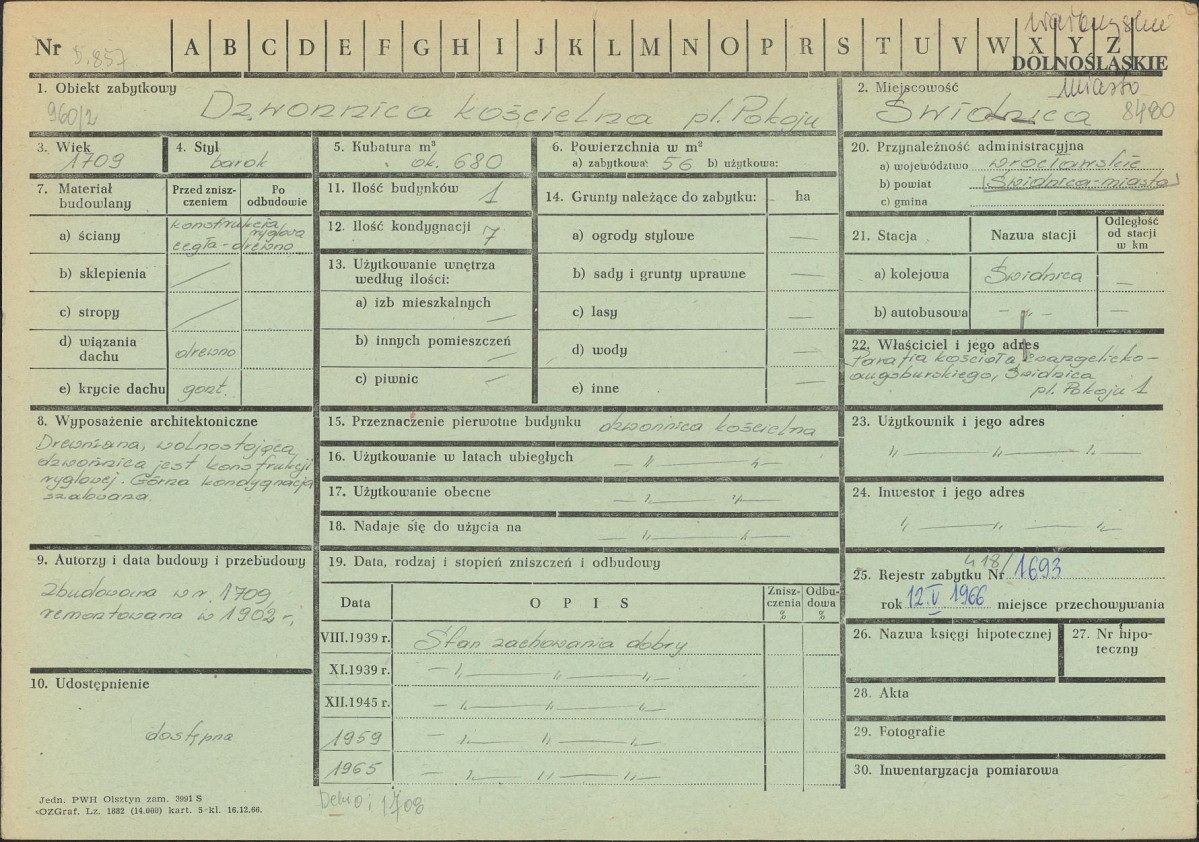 Nr 857 A B C D E F G H I J K L M N O P R S T U V W X Y Z
DOLNOŚLĄSKIE
1. Obiekt zabytkowy
960/2 Dzwonnica kościelna pl. Pokoju
2. Miejscowość miasto
Świdnica 8480
3. Wiek
1709
4. Styl
barok
5. Kubatura m³
ok. 680
6. Powierzchnia w m²
a) zabytkowa: 56 b) użytkowa:
7. Materiał budowlany
Przed zniszczeniem
Po odbudowie
a) ściany konstrukcja ryglowa
cegła-drewno
b) sklepienia
c) stropy
d) wiązania dachu drewno
e) krycie dachu gont.
8. Wyposażenie architektoniczne
Drewniana, wolnostojąca
dzwonnica jest konstrukcji
ryglowej. Górna kondygnacja
szalowana.
9. Autorzy i data budowy i przebudowy
Zbudowana w r. 1709,
remontowana w 1902 r.
10. Udostępnienie
dostępna
11. Ilość budynków 1
12. Ilość kondygnacji 7
13. Użytkowanie wnętrza
według ilości:
a) izb mieszkalnych —
b) innych pomieszczeń —
c) piwnic —
14. Grunty należące do zabytku: ha
a) ogrody stylowe —
b) sady i grunty uprawne —
c) lasy —
d) wody —
e) inne —
15. Przeznaczenie pierwotne budynku dzwonnica kościelna
16. Użytkowanie w latach ubiegłych — „ — „ —
17. Użytkowanie obecne — „ — „ —
18. Nadaje się do użycia na — „ — „ —
19. Data, rodzaj i stopień zniszczeń i odbudowy
Data OPIS Znisz-
czenia
% Odbu-
dowa
%
VIII.1939 r. Stan zachowania dobry
XI.1939 r. — „ — „ — „ —
XII.1945 r. — „ — „ — „ —
1959 — „ — „ — „ —
1965 — „ — „ — „ —
20. Przynależność administracyjna
a) województwo wrocławskie
b) powiat Świdnica-miasto
c) gmina
21. Stacja Nazwa stacji Odległość
od stacji
w km
a) kolejowa Świdnica —
b) autobusowa — „ — —
22. Właściciel i jego adres
Parafia kościoła Ewangelicko-
augsburskiego, Świdnica
pl. Pokoju 1
23. Użytkownik i jego adres
„ — „ — „
24. Inwestor i jego adres
„ — „ — „
25. Rejestr zabytku Nr 418/1693
rok 12.V 1966 miejsce przechowywania
26. Nazwa księgi hipotecznej
27. Nr hipo-
teczny
28. Akta
29. Fotografie
30. Inwentaryzacja pomiarowa
Jedn. PWH Olsztyn zam. 3991 S
OZGraf. Lz. 1882 (14.000) kart. 5 kl. 16.12.66.
Dehio: 1708